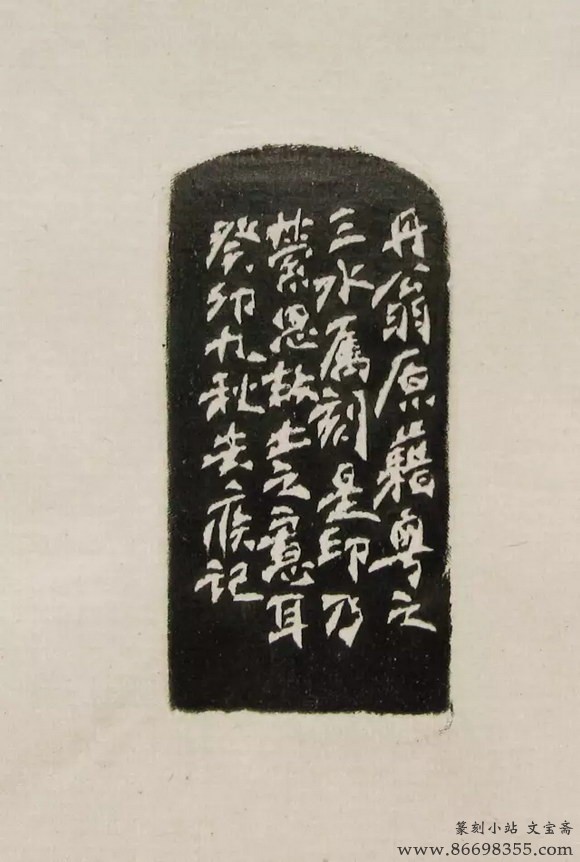 丹翁原籍粤之
三水属刻是印乃
萦思故土之意耳
癸卯九秋去疾記
篆刻小站 文宝斋
www.86698355.com